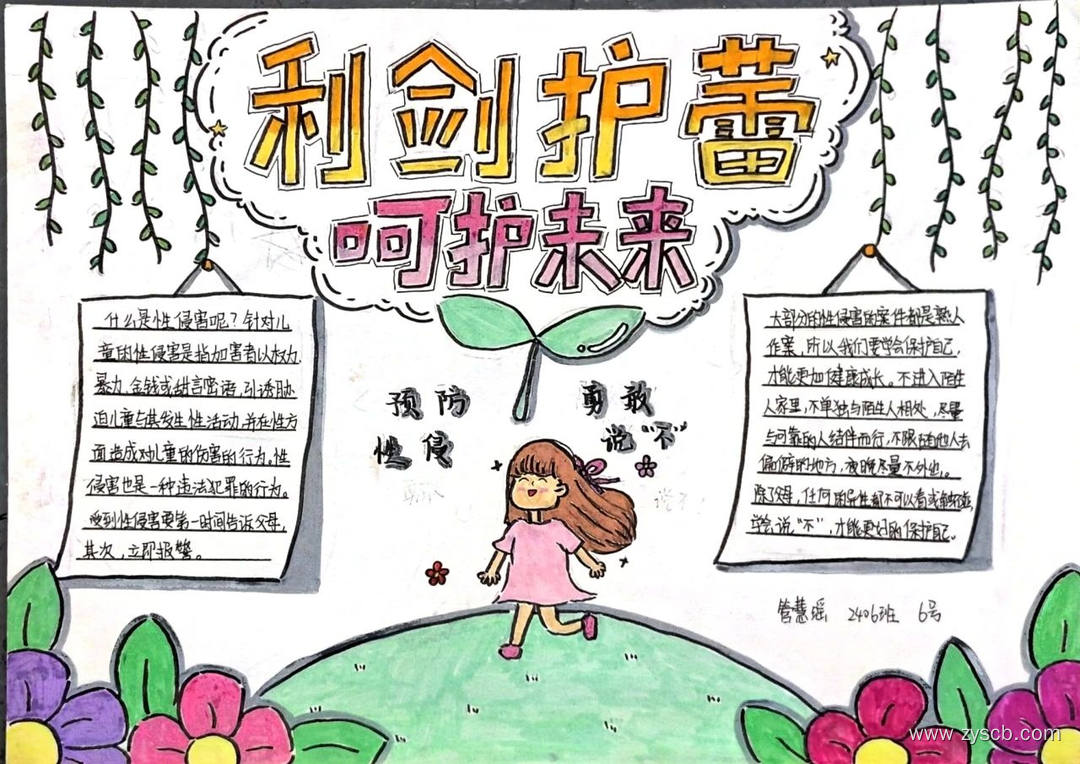 利剑护蕾
呵护未来
什么是性侵害呢？针对儿
童的性侵害是指加害者以权力、
暴力、金钱或甜言密语，引诱胁
迫儿童与其发生性活动，并在性方
面造成对儿童的伤害的行为。性
侵害也是一种违法犯罪的行为。
受到性侵害要第一时间告诉父母，
其次，立即报警。
预防
性侵
勇敢
说“不”
大部分的性侵害的案件都是熟人
作案，所以我们要学会保护自己，
才能更加健康成长。不进入陌生
人家里，不单独与陌生人相处，尽量
与可靠的人结伴而行，不跟随他人去
偏僻的地方，夜晚尽量不外出。
除了父母，任何的异性都不可以看或触碰，
学会说“不”，才能更好的保护自己。
管慧瑶 2406班 6号
www.zyscb.com